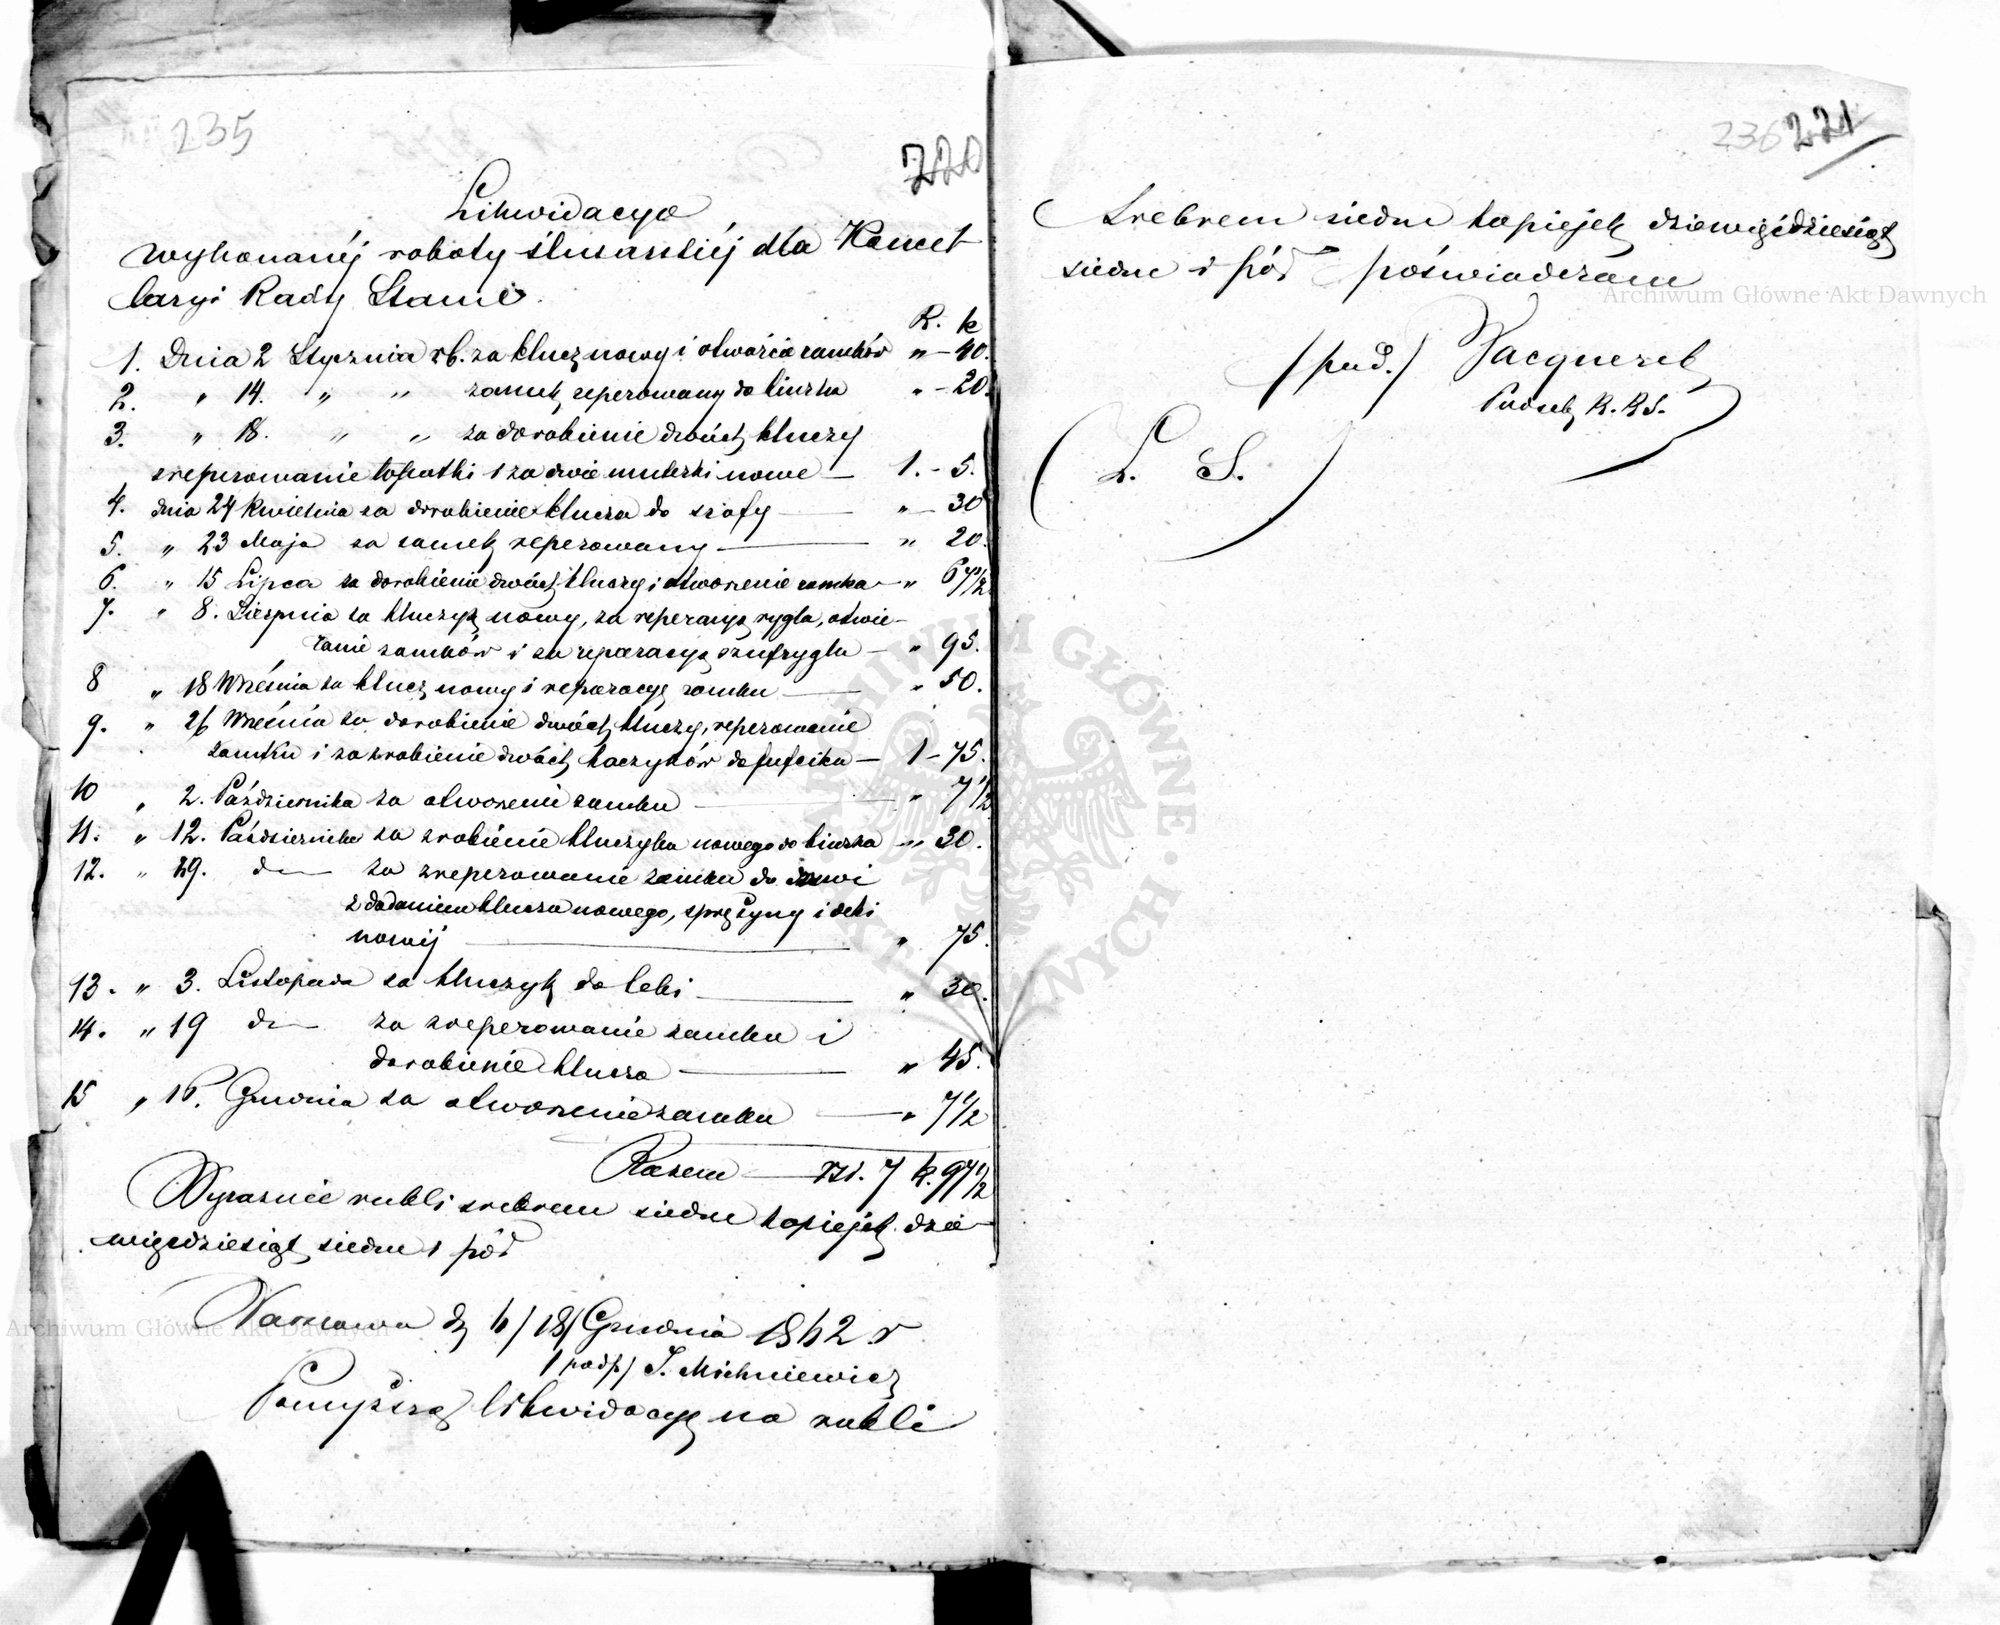 235
220
Likwidacya
wykonanéj roboty ślusarskiéj dla Kancel
laryi Rady Stanu.
R. k
1. Dnia 2 Stycznia r.b. za klucz nowy i otwarcie zamków " – 40.
2. " 14. " " zamek reperowany do biurka " – 20.
3. " 18. " " za dorobienie dwóch kluczy
zreperowanie łopatki i za dwie muterki nowe — 1. – 5.
4. dnia 24 Kwietnia za dorobienie klucza do szafy — " — 30
5. " 23 Maja za zamek reperowany — " 20.
6. " 15 Lipca za dorobienie dwóch kluczy i otworzenie zamka — " 67½
7. " 8. Sierpnia za kluczyk nowy, za reperacyę rygla, otwie-
ranie zamków i za reperacyę szufrygla — " 95.
8 " 18 Września za klucz nowy i reparacyę zamku — " 50.
9. " 26 Września za dorobienie dwóch kluczy, reperowanie
zamku i za zrobienie dwóch haczyków do lufcika — 1 – 75.
10 " 2. Października za otworzenie zamku — " 7½
11. " 12. Października za zrobienie kluczyka nowego do biurka — " 30.
12. " 29. d— za zreperowanie zamku do drzwi
z dodaniem klucza nowego, sprężyny i deki
nowéj — " 75.
13. " 3. Listopada za kluczyk do teki — " 30.
14. " 19 d— za zreperowanie zamku i
dorobienie klucza — " 45.
15 " 16. Grudnia za otworzenie zamku — " 7½
Razem — rsr. 7 k. 97½
Wyraźnie rubli srebrem siedm kopiejek dzie-
więćdziesiąt siedm i pół
Warszawa d. 6/18/ Grudnia 1862 r
/podp/ J. Michniewicz
Powyższą likwidacyę na rubli
236 221
srebrem siedm kopiejek dziewięćdziesiąt
siedm i pół poświadczam
/pod./ Jacquerel
L. S.
Archiwum Główne Akt Dawnych
Archiwum Główne Akt Dawnych
ARCHIWUM GŁÓWNE AKT DAWNYCH